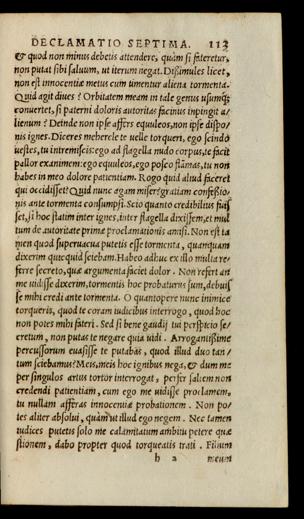 DECLAMATIO SEPTIMA. 113
& quod non minus debetis attendere, quàm si fateretur,
non putat sibi saluum, ut iterum negat. Dissimules licet,
non est innocentiæ metus cum timentur aliena tormenta.
Quid agit diues? Orbitatem meam in tale genus usumq;
conuertet, si paterni doloris autoritas facinus inpingit a-
lienum? Deinde non ipse affers equuleos, non ipse dispo-
nis ignes. Diceres mehercle te uelle torqueri, ego scindo
uestes, tu intremiscis: ego ad flagella nudo corpus, te facit
pallor exanimem: ego equuleos, ego posco flāmas, tu non
habes in meo dolore patientiam. Rogo quid aliud faceret
qui occidisset? Quid nunc agam miser? gratiam confessio-
nis ante tormenta consumpsi. Scio quanto credibilius fuis
set, si hoc statim inter ignes, inter flagella dixissem, et mul
tum de autoritate primæ proclamationis amisi. Non est ta
men quod superuacua putetis esse tormenta, quamquam
dixerim quicquid sciebam. Habeo adhuc ex illo multa re-
ferre secreto, quæ argumenta faciet dolor. Non refert an
me uidisse dixerim, tormentis hoc probaturus sum, debuis
se mihi credi ante tormenta. O quantopere nunc inimice
torqueris, quod te coram iudicibus interrogo, quod hoc
non potes mihi fateri. Sed si bene gaudij tui perspicio se-
cretum, non putas te negare quia uidi. Arrogantissime
percussorum euasisse te putabas, quod illud duo tan-
tum sciebamus? Meis, meis hoc ignibus nega, & dum me
per singulos artus tortor interrogat, perfer saltem non
credendi patientiam, cum ego me uidisse proclamem,
tu nullam afferas innocentiæ probationem. Non po-
tes aliter absolui, quàm ut illud ego negem. Nec tamen
iudices putetis solo me calamitatum ambitu petere quæ
stionem, dabo propter quod torqueatis trati. Filium
h 2 meum